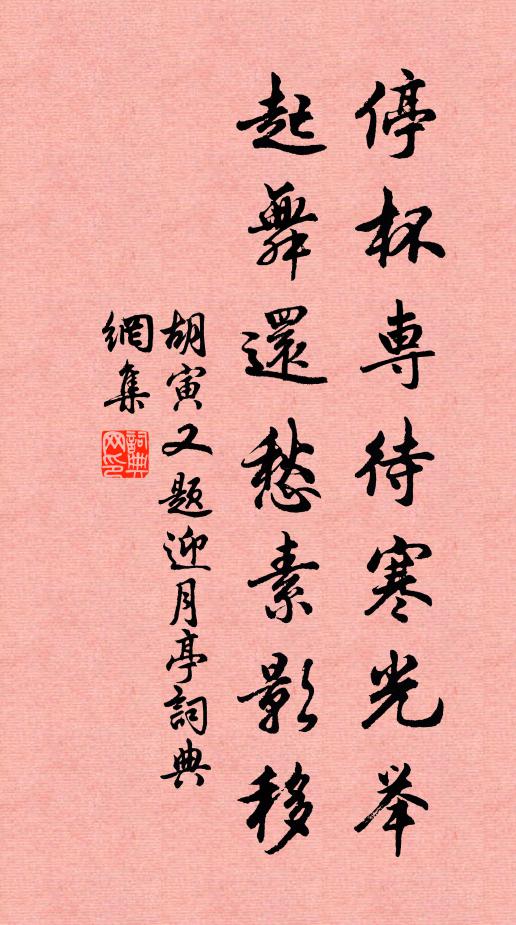 停杯専待寒光举
起舞還愁素影移
胡寅又题迎月亭詞典
網集
詞典网印